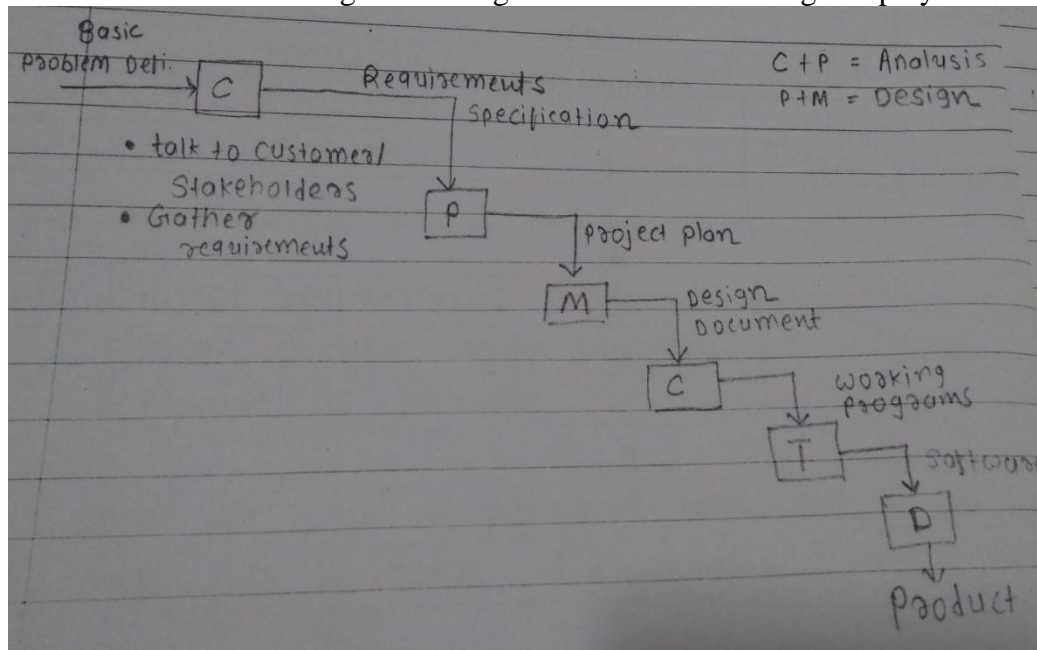 Basic
Problem Defi.
C
Requirements
Specification
C + P = Analusis
P + M = Design
• talk to customer/
Stakeholders
• Gather
requirements
P
Project plan
M
Design
Document
C
working
programs
T
Software
D
Product